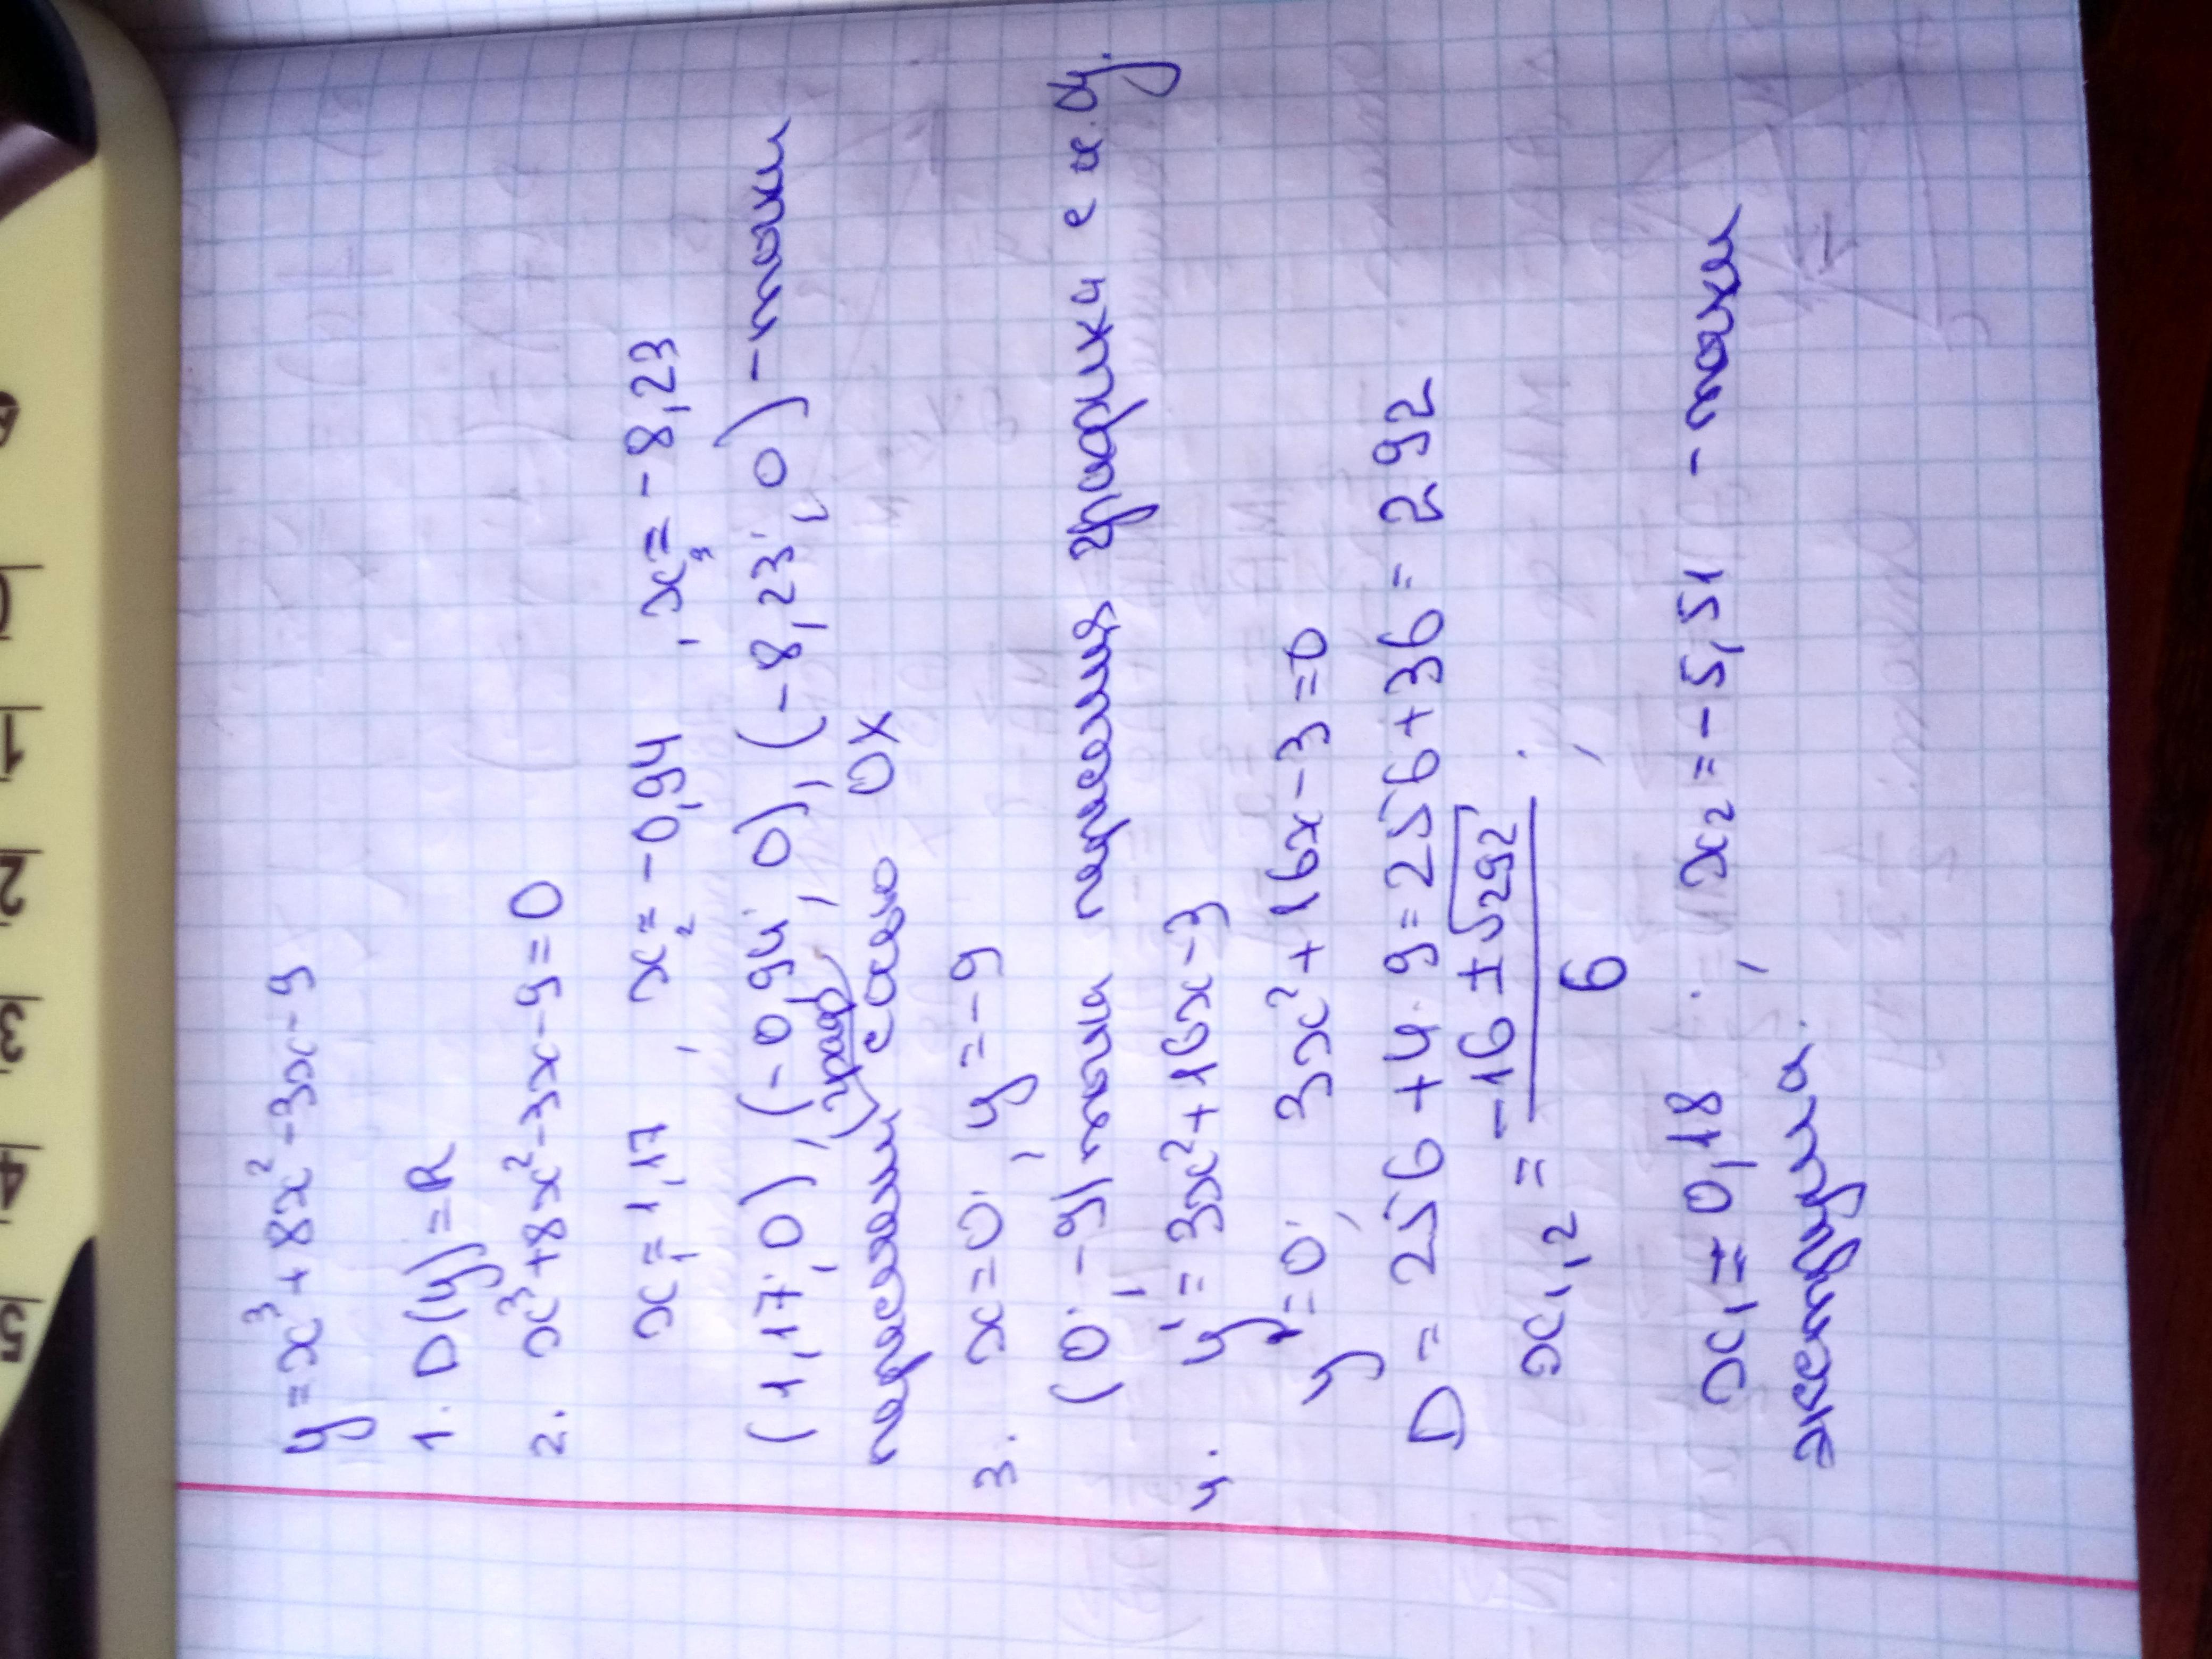 y = x³ + 8x² - 3x - 9
1. D(y) = R
2. x³ + 8x² - 3x - 9 = 0
x₁ = 1,17 , x₂ = -0,94 , x₃ = -8,23
(1,17; 0), (-0,94; 0), (-8,23; 0) - точки
пересечения (граф) с осью OX
3. x = 0; y = -9
(0; -9) точка пересечения графика с и. Oy.
4. y' = 3x² + 16x - 3
y' = 0; 3x² + 16x - 3 = 0
D = 256 + 4·9 = 256 + 36 = 292
x₁,₂ = (-16 ± √292) / 6 ;
x₁ = 0,18 ; x₂ = -5,51 - точки
экстремума.
5 4 3 2 1 0